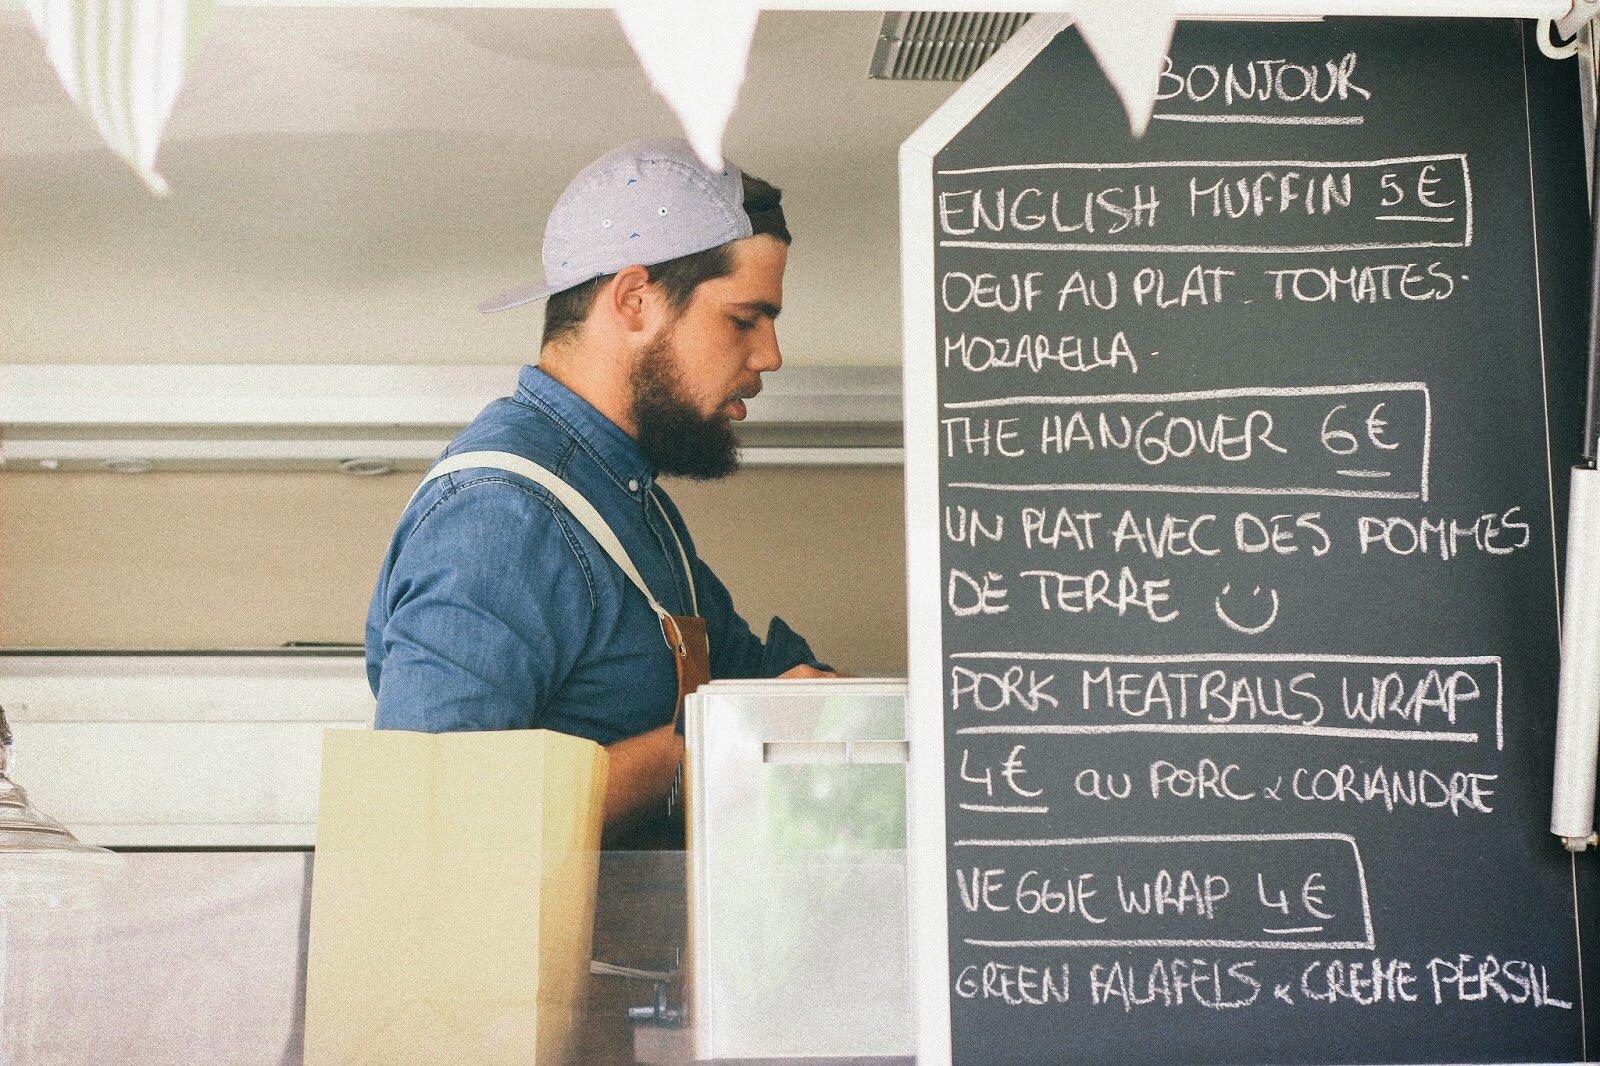 BONJOUR
ENGLISH MUFFIN 5€
OEUF AU PLAT - TOMATES -
MOZARELLA -
THE HANGOVER 6€
UN PLAT AVEC DES POMMES
DE TERRE
PORK MEATBALLS WRAP
4€ au PORC & CORIANDRE
VEGGIE WRAP 4€
GREEN FALAFELS & CREME PERSIL